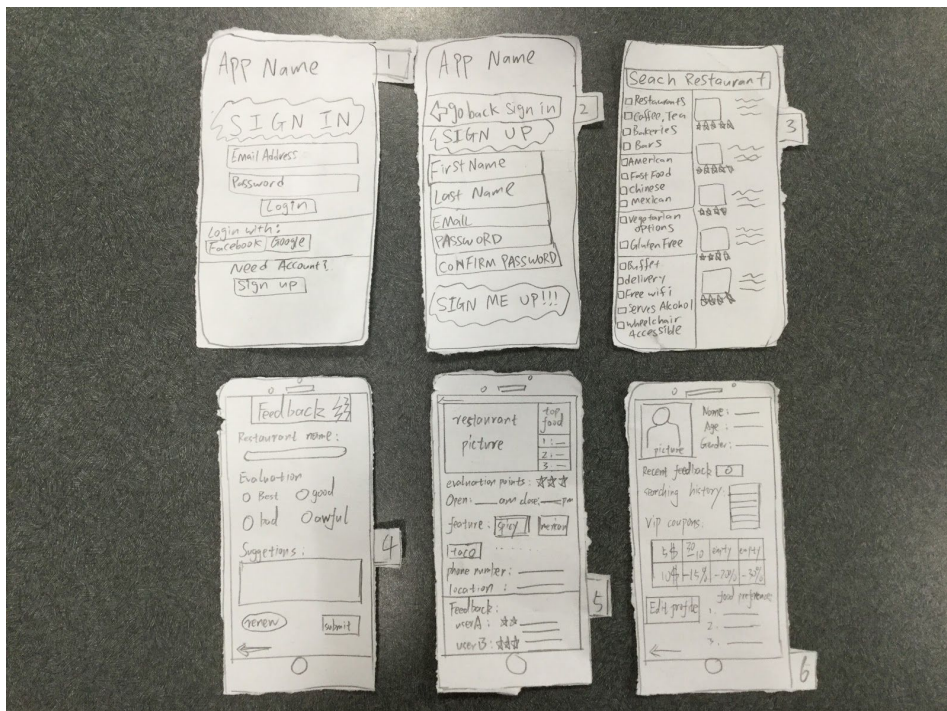 1
App Name
SIGN IN
Email Address
Password
Login
Login with:
Facebook Google
Need Account?
Sign up
2
App Name
go back Sign in
SIGN UP
First Name
Last Name
EMail
PASSWORD
CONFIRM PASSWORD
SIGN ME UP!!!
3
Seach Restaurant
Restaurants
Coffee, Tea
Bakeries
Bars
American
Fast Food
Chinese
mexican
vegetarian
options
Gluten Free
Buffet
delivery
Free wifi
Serves Alcohol
wheelchair
Accessible
4
Feedback
Restaurant name:
Evaluation
Best good
bad awful
Suggestions:
renew submit
5
restaurant
picture
top
food
1:
2:
3
evaluation points:
Open: am close: pm
feature: spicy
taco
phone number:
location:
Feedback:
userA:
userB:
6
picture
Name:
Age:
Gender:
Recent feedback 0
searching history:
Vip coupons:
10$ -15% -20% -30%
Edit profile
food preference
1.
2.
3.